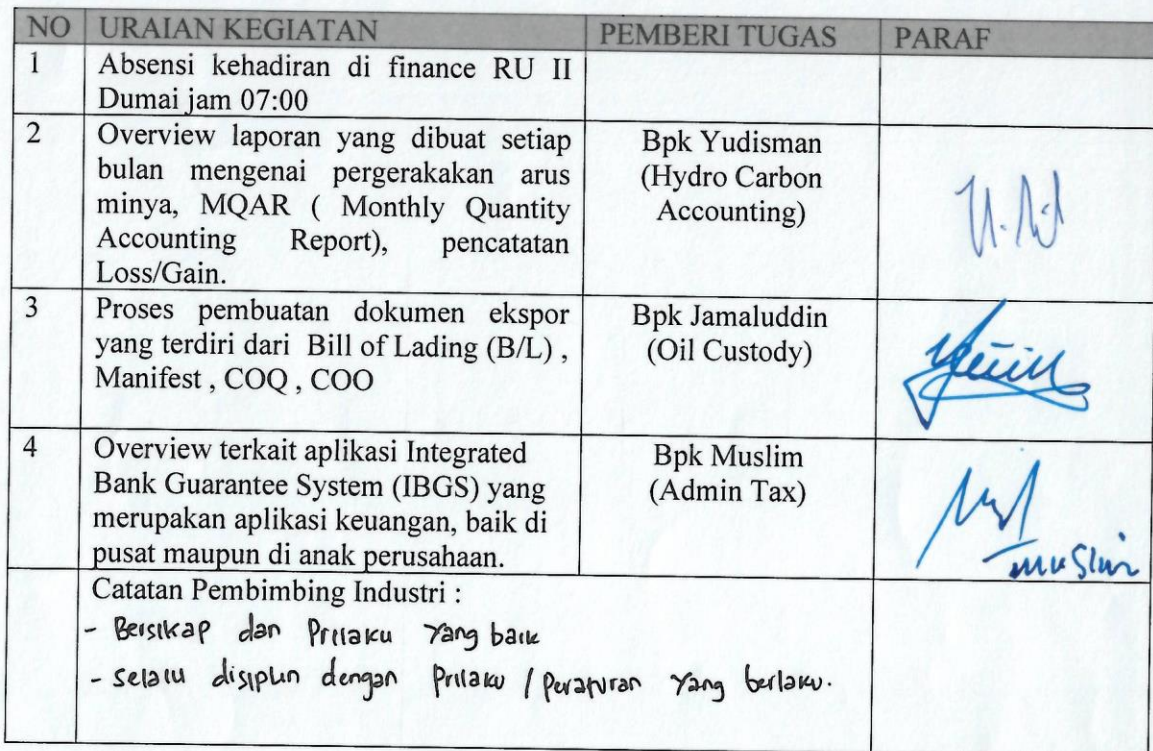 NO URAIAN KEGIATAN PEMBERI TUGAS PARAF
1 Absensi kehadiran di finance RU II
Dumai jam 07:00
2 Overview laporan yang dibuat setiap
bulan mengenai pergerakakan arus
minya, MQAR ( Monthly Quantity
Accounting Report), pencatatan
Loss/Gain.
Bpk Yudisman
(Hydro Carbon
Accounting)
3 Proses pembuatan dokumen ekspor
yang terdiri dari Bill of Lading (B/L) ,
Manifest , COQ , COO
Bpk Jamaluddin
(Oil Custody)
4 Overview terkait aplikasi Integrated
Bank Guarantee System (IBGS) yang
merupakan aplikasi keuangan, baik di
pusat maupun di anak perusahaan.
Bpk Muslim
(Admin Tax)
muslim
Catatan Pembimbing Industri :
- Bersikap dan Prilaku Yang baik
- selalu disiplin dengan Prilaku / Peraturan Yang berlaku.